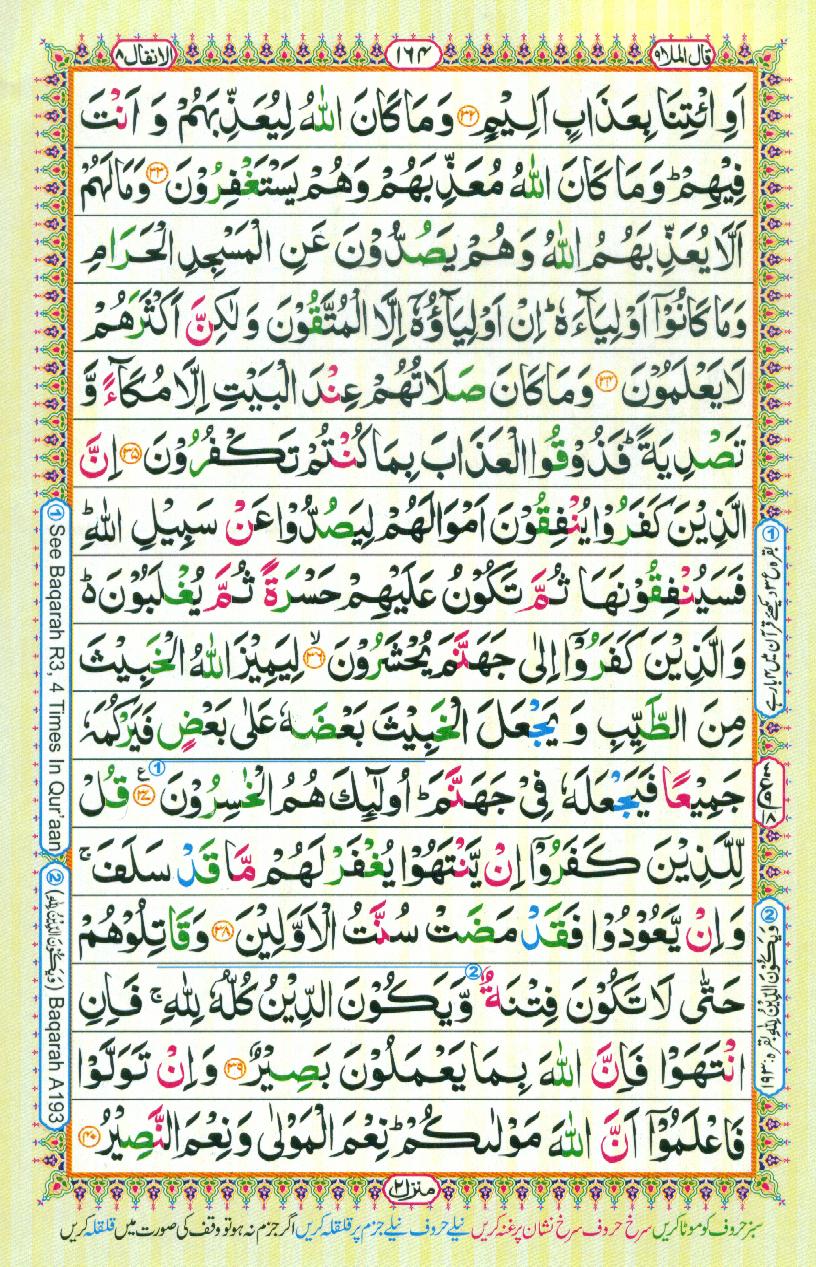 قال الملا ۹
۱۶۴
الانفال ۸
اَوِ ائْتِنَا بِعَذَابٍ اَلِيْمٍ ۝۳۲ وَمَا كَانَ اللّٰهُ لِيُعَذِّبَهُمْ وَ اَنْتَ
فِيْهِمْ ؕ وَمَا كَانَ اللّٰهُ مُعَذِّبَهُمْ وَهُمْ يَسْتَغْفِرُوْنَ ۝۳۳ وَمَا لَهُمْ
اَلَّا يُعَذِّبَهُمُ اللّٰهُ وَهُمْ يَصُدُّوْنَ عَنِ الْمَسْجِدِ الْحَرَامِ
وَمَا كَانُوْۤا اَوْلِيَآءَهٗ ؕ اِنْ اَوْلِيَآؤُهٗۤ اِلَّا الْمُتَّقُوْنَ وَلٰكِنَّ اَكْثَرَهُمْ
لَا يَعْلَمُوْنَ ۝۳۴ وَمَا كَانَ صَلَاتُهُمْ عِنْدَ الْبَيْتِ اِلَّا مُكَآءً وَّ
تَصْدِيَةً ؕ فَذُوْقُوا الْعَذَابَ بِمَا كُنْتُمْ تَكْفُرُوْنَ ۝۳۵ اِنَّ
الَّذِيْنَ كَفَرُوْا يُنْفِقُوْنَ اَمْوَالَهُمْ لِيَصُدُّوْا عَنْ سَبِيْلِ اللّٰهِ ؕ
فَسَيُنْفِقُوْنَهَا ثُمَّ تَكُوْنُ عَلَيْهِمْ حَسْرَةً ثُمَّ يُغْلَبُوْنَ ؕ۬
وَالَّذِيْنَ كَفَرُوْۤا اِلٰى جَهَنَّمَ يُحْشَرُوْنَ ۝۳۶ۙ لِيَمِيْزَ اللّٰهُ الْخَبِيْثَ
مِنَ الطَّيِّبِ وَ يَجْعَلَ الْخَبِيْثَ بَعْضَهٗ عَلٰى بَعْضٍ فَيَرْكُمَهٗ
جَمِيْعًا فَيَجْعَلَهٗ فِيْ جَهَنَّمَ ؕ اُولٰٓئِكَ هُمُ الْخٰسِرُوْنَ ۝۳۷ ع ① قُلْ
لِّلَّذِيْنَ كَفَرُوْۤا اِنْ يَّنْتَهُوْا يُغْفَرْ لَهُمْ مَّا قَدْ سَلَفَ ۚ
وَاِنْ يَّعُوْدُوْا فَقَدْ مَضَتْ سُنَّتُ الْاَوَّلِيْنَ ۝۳۸ وَقَاتِلُوْهُمْ
حَتّٰى لَا تَكُوْنَ فِتْنَةٌ ② وَّيَكُوْنَ الدِّيْنُ كُلُّهٗ لِلّٰهِ ۚ فَاِنِ
انْتَهَوْا فَاِنَّ اللّٰهَ بِمَا يَعْمَلُوْنَ بَصِيْرٌ ۝۳۹ وَاِنْ تَوَلَّوْا
فَاعْلَمُوْۤا اَنَّ اللّٰهَ مَوْلٰىكُمْ ؕ نِعْمَ الْمَوْلٰى وَنِعْمَ النَّصِيْرُ ۝۴۰
① See Baqarah R3, 4 Times In Qur'aan
② (وَيَكُوْنَ الدِّيْنُ لِلّٰهِ) Baqarah A193
① بقرہ ع ۳ دیکھئے قرآن میں ۴ بار ہے
② وَيَكُوْنَ الدِّيْنُ لِلّٰهِ بقرہ: ۱۹۳
منزل ۲
سبز حروف کو موٹا کریں سرخ حروف سرخ نشان پر غنہ کریں نیلے حروف نیلے جزم پر قلقلہ کریں اگر جزم نہ ہو تو وقف کی صورت میں قلقلہ کریں